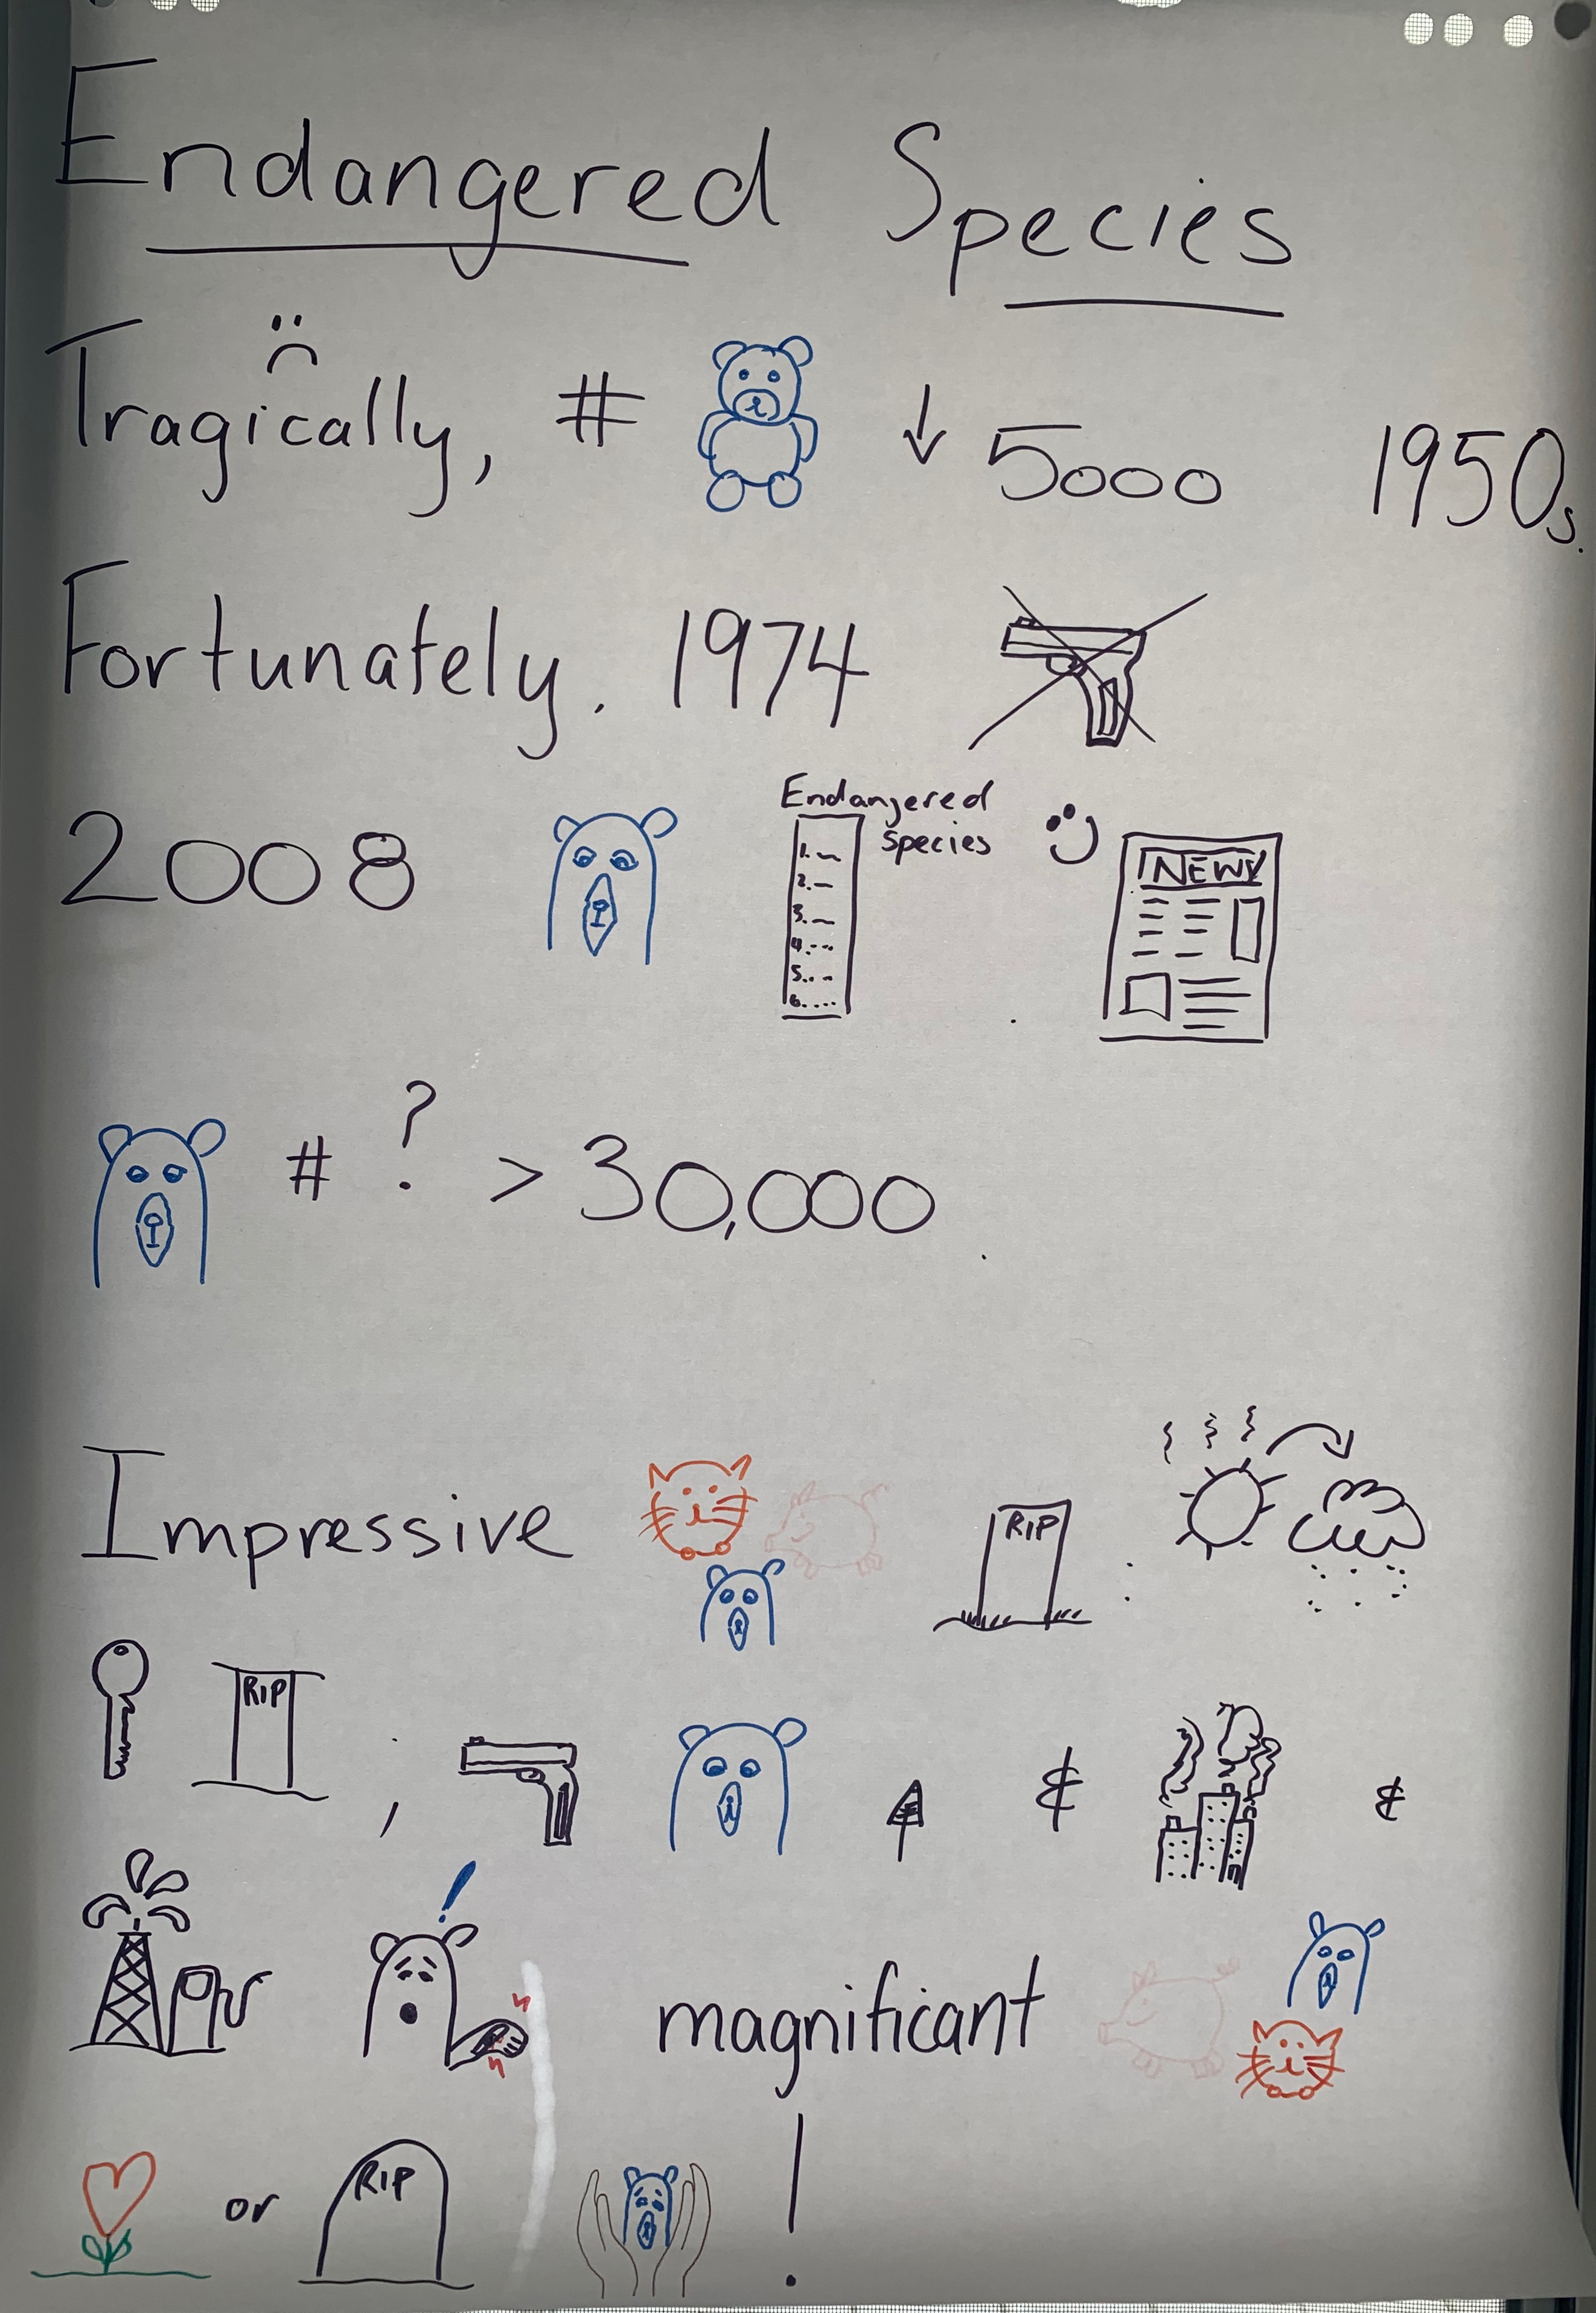 Endangered Species
Tragically, # ↓ 5000 1950s.
Fortunately, 1974
2008
Endangered
Species
1.
2.
3.
4.
5.
6.
NEWS
# ? > 30,000
Impressive
RIP
RIP
, & &
!
magnificant
or RIP !